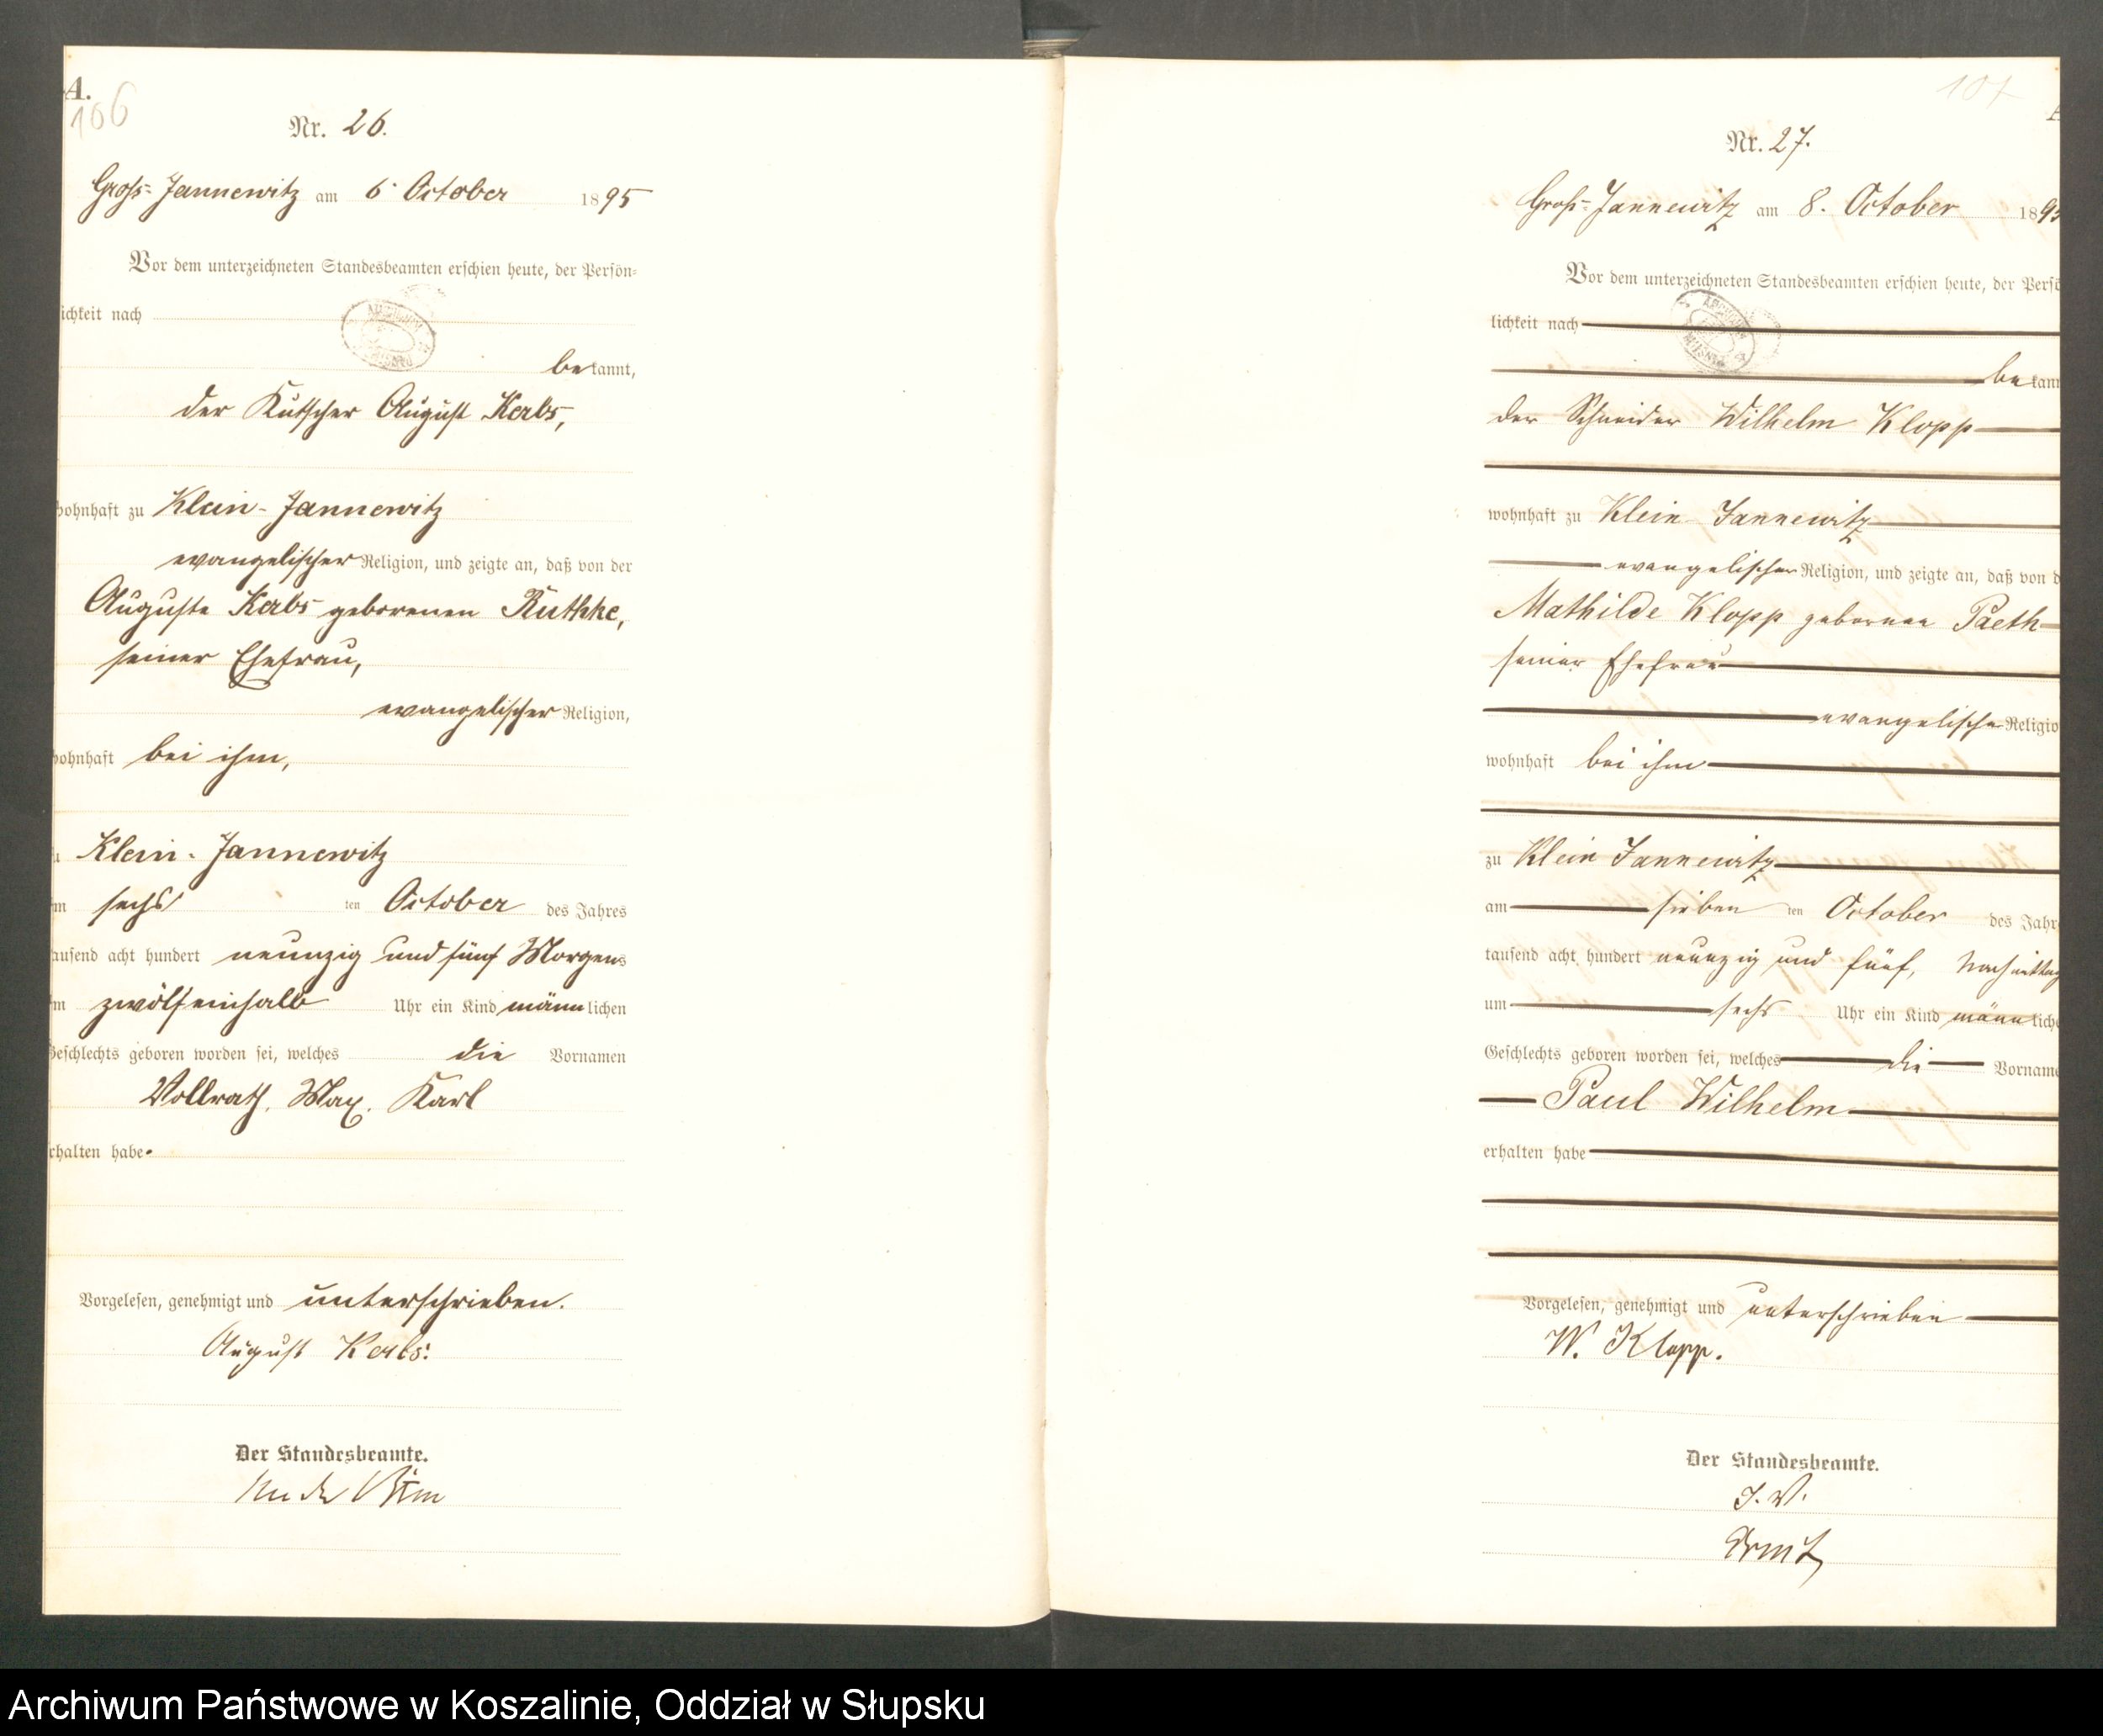 A.
106
Nr. 26.
Groß-Jannewitz am 6. October 1895
Vor dem unterzeichneten Standesbeamten erschien heute, der Persön-
lichkeit nach
bekannt,
der Kutscher August Kerbs,
wohnhaft zu Klein-Jannewitz
evangelischer Religion, und zeigte an, daß von der
Auguste Kerbs geborenen Ruthke,
seiner Ehefrau,
evangelischer Religion,
wohnhaft bei ihm,
zu Klein-Jannewitz
am sechsten October des Jahres
tausend acht hundert neunzig und fünf Morgens
um zwölfeinhalb Uhr ein Kind männlichen
Geschlechts geboren worden sei, welches die Vornamen
Vollrath. Max. Karl
erhalten habe.
Vorgelesen, genehmigt und unterschrieben.
August Kerbs.
Der Standesbeamte.
107
Nr. 27.
Groß-Jannewitz am 8. October 1895
Vor dem unterzeichneten Standesbeamten erschien heute, der Persö
lichkeit nach
bekann
der Schneider Wilhelm Klopp
wohnhaft zu Klein Jannewitz
evangelischer Religion, und zeigte an, daß von d
Mathilde Klopp geborenen Paeth
seiner Ehefrau
evangelischer Religio
wohnhaft bei ihm
zu Klein Jannewitz
am siebenten October des Jahr
tausend acht hundert neunzig und fünf, Nachmittag
um sechs Uhr ein Kind männliche
Geschlechts geboren worden sei, welches die Vorname
Paul Wilhelm
erhalten habe
Vorgelesen, genehmigt und unterschrieben
W. Klopp.
Der Standesbeamte.
I. V.
Archiwum Państwowe w Koszalinie, Oddział w Słupsku